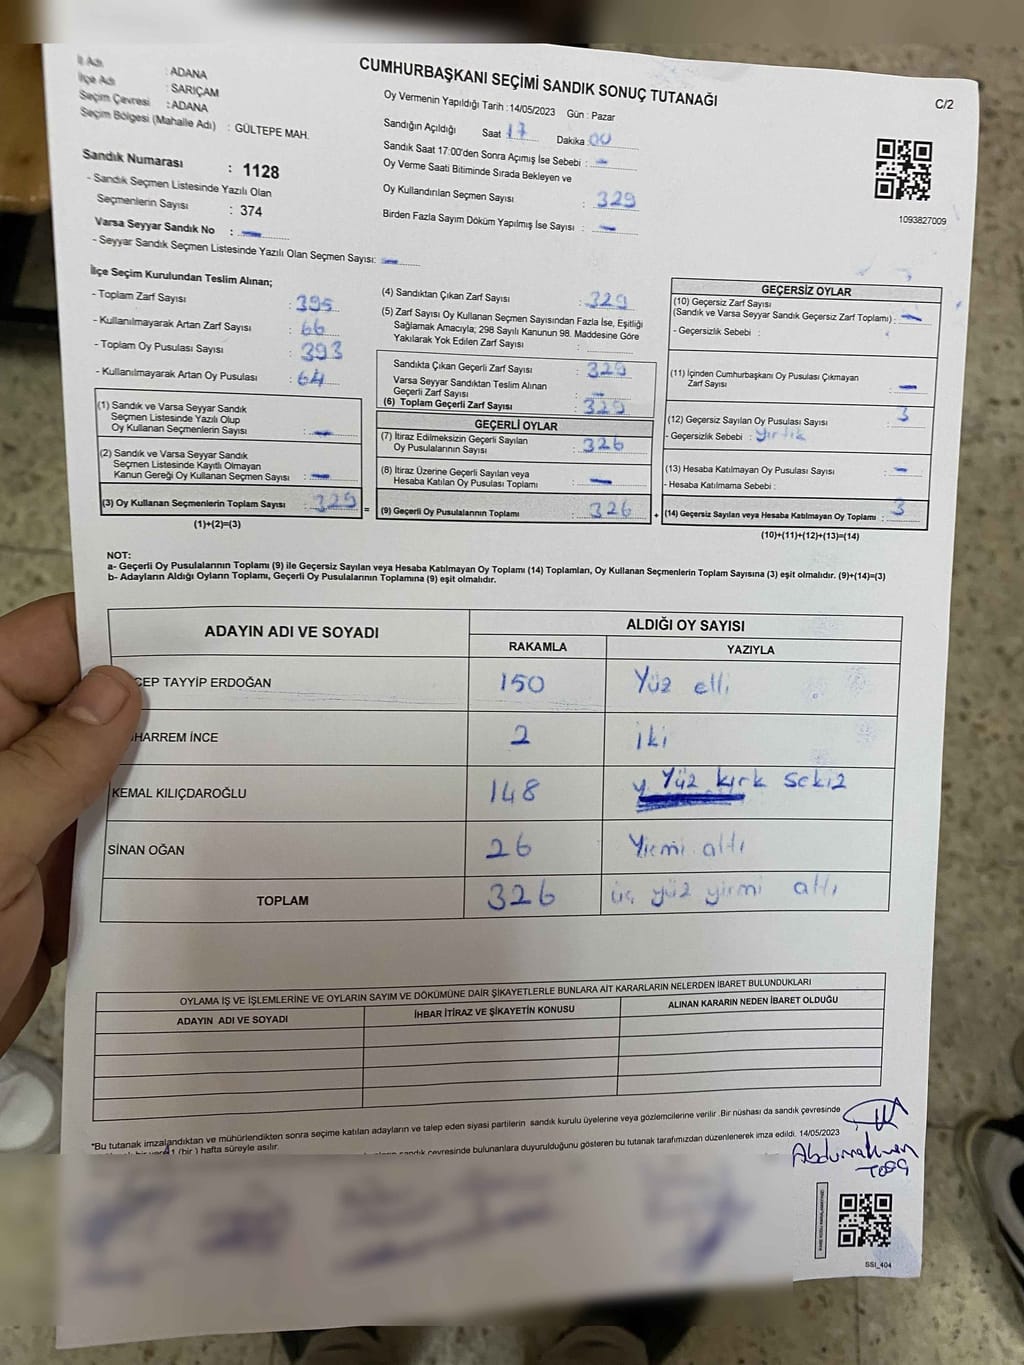 CUMHURBAŞKANI SEÇİMİ SANDIK SONUÇ TUTANAĞI
C/2
İl Adı : ADANA
İlçe Adı : SARIÇAM
Seçim Çevresi : ADANA
Seçim Bölgesi (Mahalle Adı) : GÜLTEPE MAH.
Sandık Numarası : 1128
- Sandık Seçmen Listesinde Yazılı Olan
Seçmenlerin Sayısı : 374
Varsa Seyyar Sandık No : —
- Seyyar Sandık Seçmen Listesinde Yazılı Olan Seçmen Sayısı: —
Oy Vermenin Yapıldığı Tarih : 14/05/2023 Gün : Pazar
Sandığın Açıldığı Saat 17 Dakika : 00
Sandık Saat 17:00'den Sonra Açımış İse Sebebi : —
Oy Verme Saati Bitiminde Sırada Bekleyen ve
Oy Kullandırılan Seçmen Sayısı : 329
Birden Fazla Sayım Döküm Yapılmış İse Sayısı : —
1093827009
İlçe Seçim Kurulundan Teslim Alınan;
- Toplam Zarf Sayısı : 395
- Kullanılmayarak Artan Zarf Sayısı : 66
- Toplam Oy Pusulası Sayısı : 393
- Kullanılmayarak Artan Oy Pusulası : 64
(1) Sandık ve Varsa Seyyar Sandık
Seçmen Listesinde Yazılı Olup
Oy Kullanan Seçmenlerin Sayısı : —
(2) Sandık ve Varsa Seyyar Sandık
Seçmen Listesinde Kayıtlı Olmayan
Kanun Gereği Oy Kullanan Seçmen Sayısı : —
(3) Oy Kullanan Seçmenlerin Toplam Sayısı : 329 =
(1)+(2)=(3)
(4) Sandıktan Çıkan Zarf Sayısı : 329
(5) Zarf Sayısı Oy Kullanan Seçmen Sayısından Fazla İse, Eşitliği
Sağlamak Amacıyla; 298 Sayılı Kanunun 98. Maddesine Göre
Yakılarak Yok Edilen Zarf Sayısı :
Sandıkta Çıkan Geçerli Zarf Sayısı : 329
Varsa Seyyar Sandıktan Teslim Alınan
Geçerli Zarf Sayısı : —
(6) Toplam Geçerli Zarf Sayısı : 329
GEÇERLİ OYLAR
(7) İtiraz Edilmeksizin Geçerli Sayılan
Oy Pusulalarının Sayısı : 326
(8) İtiraz Üzerine Geçerli Sayılan veya
Hesaba Katılan Oy Pusulası Toplamı : —
(9) Geçerli Oy Pusulalarının Toplamı : 326 +
GEÇERSİZ OYLAR
(10) Geçersiz Zarf Sayısı
(Sandık ve Varsa Seyyar Sandık Geçersiz Zarf Toplamı) : —
- Geçersizlik Sebebi :
(11) İçinden Cumhurbaşkanı Oy Pusulası Çıkmayan
Zarf Sayısı : —
(12) Geçersiz Sayılan Oy Pusulası Sayısı : 3
- Geçersizlik Sebebi : yırtık
(13) Hesaba Katılmayan Oy Pusulası Sayısı : —
- Hesaba Katılmama Sebebi :
(14) Geçersiz Sayılan veya Hesaba Katılmayan Oy Toplamı : 3
(10)+(11)+(12)+(13)=(14)
NOT:
a- Geçerli Oy Pusulasının Toplamı (9) ile Geçersiz Sayılan veya Hesaba Katılmayan Oy Toplamı (14) Toplamları, Oy Kullanan Seçmenlerin Toplam Sayısına (3) eşit olmalıdır. (9)+(14)=(3)
b- Adayların Aldığı Oyların Toplamı, Geçerli Oy Pusulalarının Toplamına (9) eşit olmalıdır.
ADAYIN ADI VE SOYADI ALDIĞI OY SAYISI
RAKAMLA YAZIYLA
CEP TAYYİP ERDOĞAN 150 Yüz elli
HARREM İNCE 2 iki
KEMAL KILIÇDAROĞLU 148 y Yüz kırk sekiz
SİNAN OĞAN 26 Yirmi altı
TOPLAM 326 üç yüz yirmi altı
OYLAMA İŞ VE İŞLEMLERİNE VE OYLARIN SAYIM VE DÖKÜMÜNE DAİR ŞİKAYETLERLE BUNLARA AİT KARARLARIN NELERDEN İBARET BULUNDUKLARI
ADAYIN ADI VE SOYADI İHBAR İTİRAZ VE ŞİKAYETİN KONUSU ALINAN KARARIN NEDEN İBARET OLDUĞU
*Bu tutanak imzalandıktan ve mühürlendikten sonra seçime katılan adayların ve talep eden siyasi partilerin sandık kurulu üyelerine veya gözlemcilerine verilir .Bir nüshası da sandık çevresinde
1 (bir) hafta süreyle asılır.
sandık çevresinde bulunanlara duyurulduğunu gösteren bu tutanak tarafımızdan düzenlenerek imza edildi. 14/05/2023
SSI_404